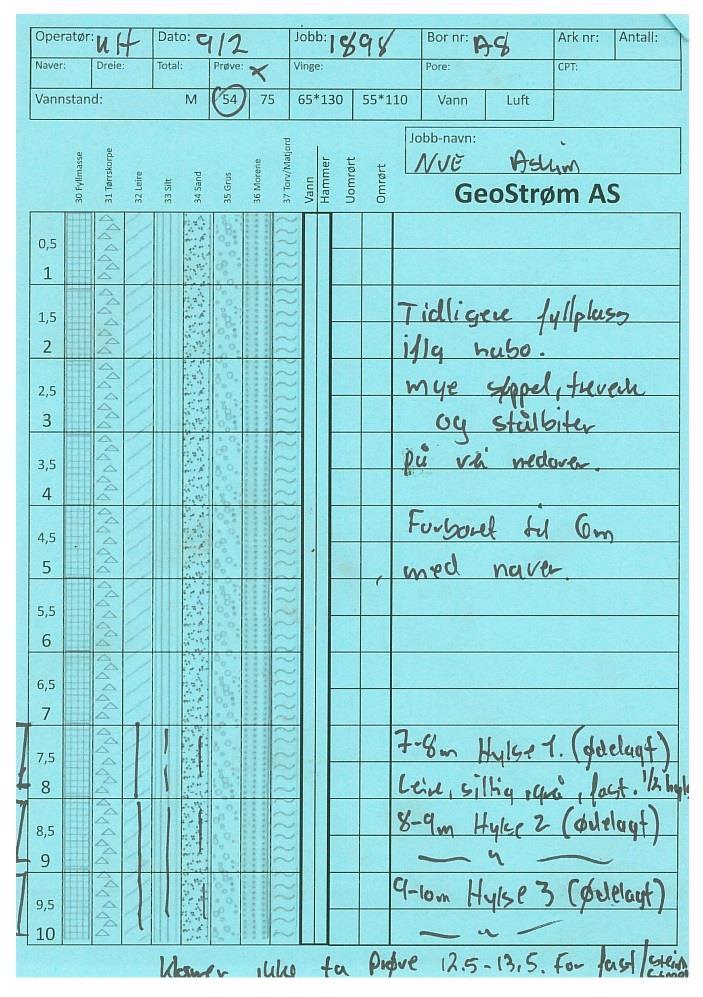 Operatør: UH Dato: 9/2 Jobb: 1898 Bor nr: A8 Ark nr: Antall:
Naver: Dreie: Total: Prøve: X Vinge: Pore: CPT:
Vannstand: M 54 75 65*130 55*110 Vann Luft
Jobb-navn:
NVE Askim
GeoStrøm AS
30 Fyllmasse
31 Tørrskorpe
32 Leire
33 Silt
34 Sand
35 Grus
36 Morene
37 Torv/Matjord
Vann
Hammer
Uomrørt
Omrørt
0,5
1
1,5
2
2,5
3
3,5
4
4,5
5
5,5
6
6,5
7
7,5
8
8,5
9
9,5
10
Tidligere fyllplass
iflg nabo.
mye søppel, treverk
og stålbiter
på vei nedover.
Forboret til 6m
med naver.
7-8m Hylse 1. (ødelagt)
Leire, siltig, grå, fast. 1/2 hylse
8-9m Hylse 2 (ødelagt)
— " —
9-10m Hylse 3 (ødelagt)
— " —
Klarer ikke ta prøve 12.5-13.5. For fast/stein